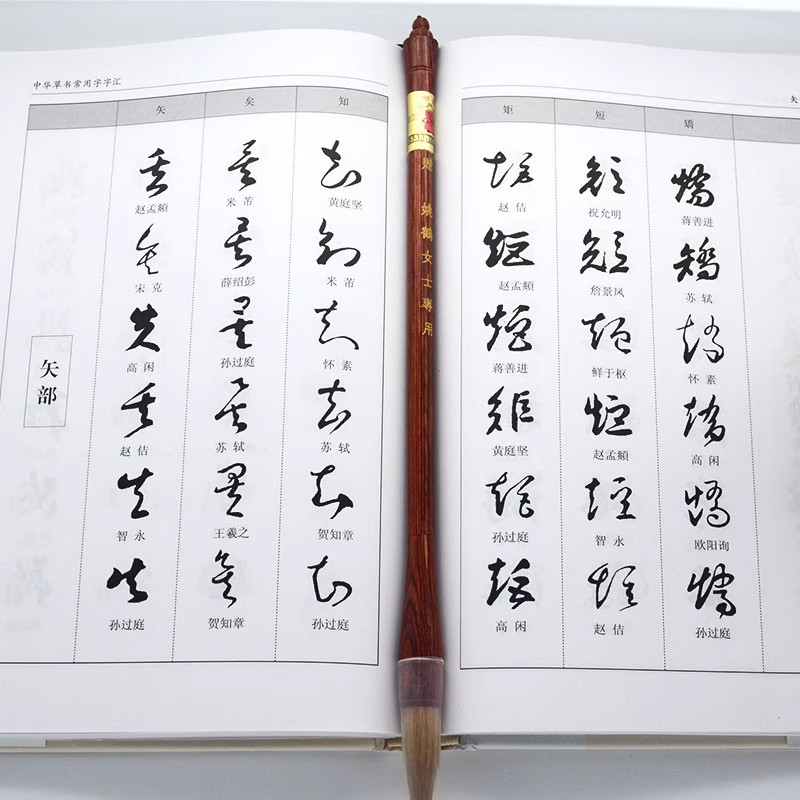 中华草书常用字字汇
矢 矣 知
赵孟頫 米芾 黄庭坚
宋克 薛绍彭 米芾
高闲 孙过庭 怀素
赵佶 苏轼 苏轼
智永 王羲之 贺知章
孙过庭 贺知章 孙过庭
矢部
姚鹤女士專用
矢
矩 短 矯
赵佶 祝允明 蒋善进
赵孟頫 詹景凤 苏轼
蒋善进 鲜于枢 怀素
黄庭坚 赵孟頫 高闲
孙过庭 智永 欧阳询
高闲 赵佶 孙过庭